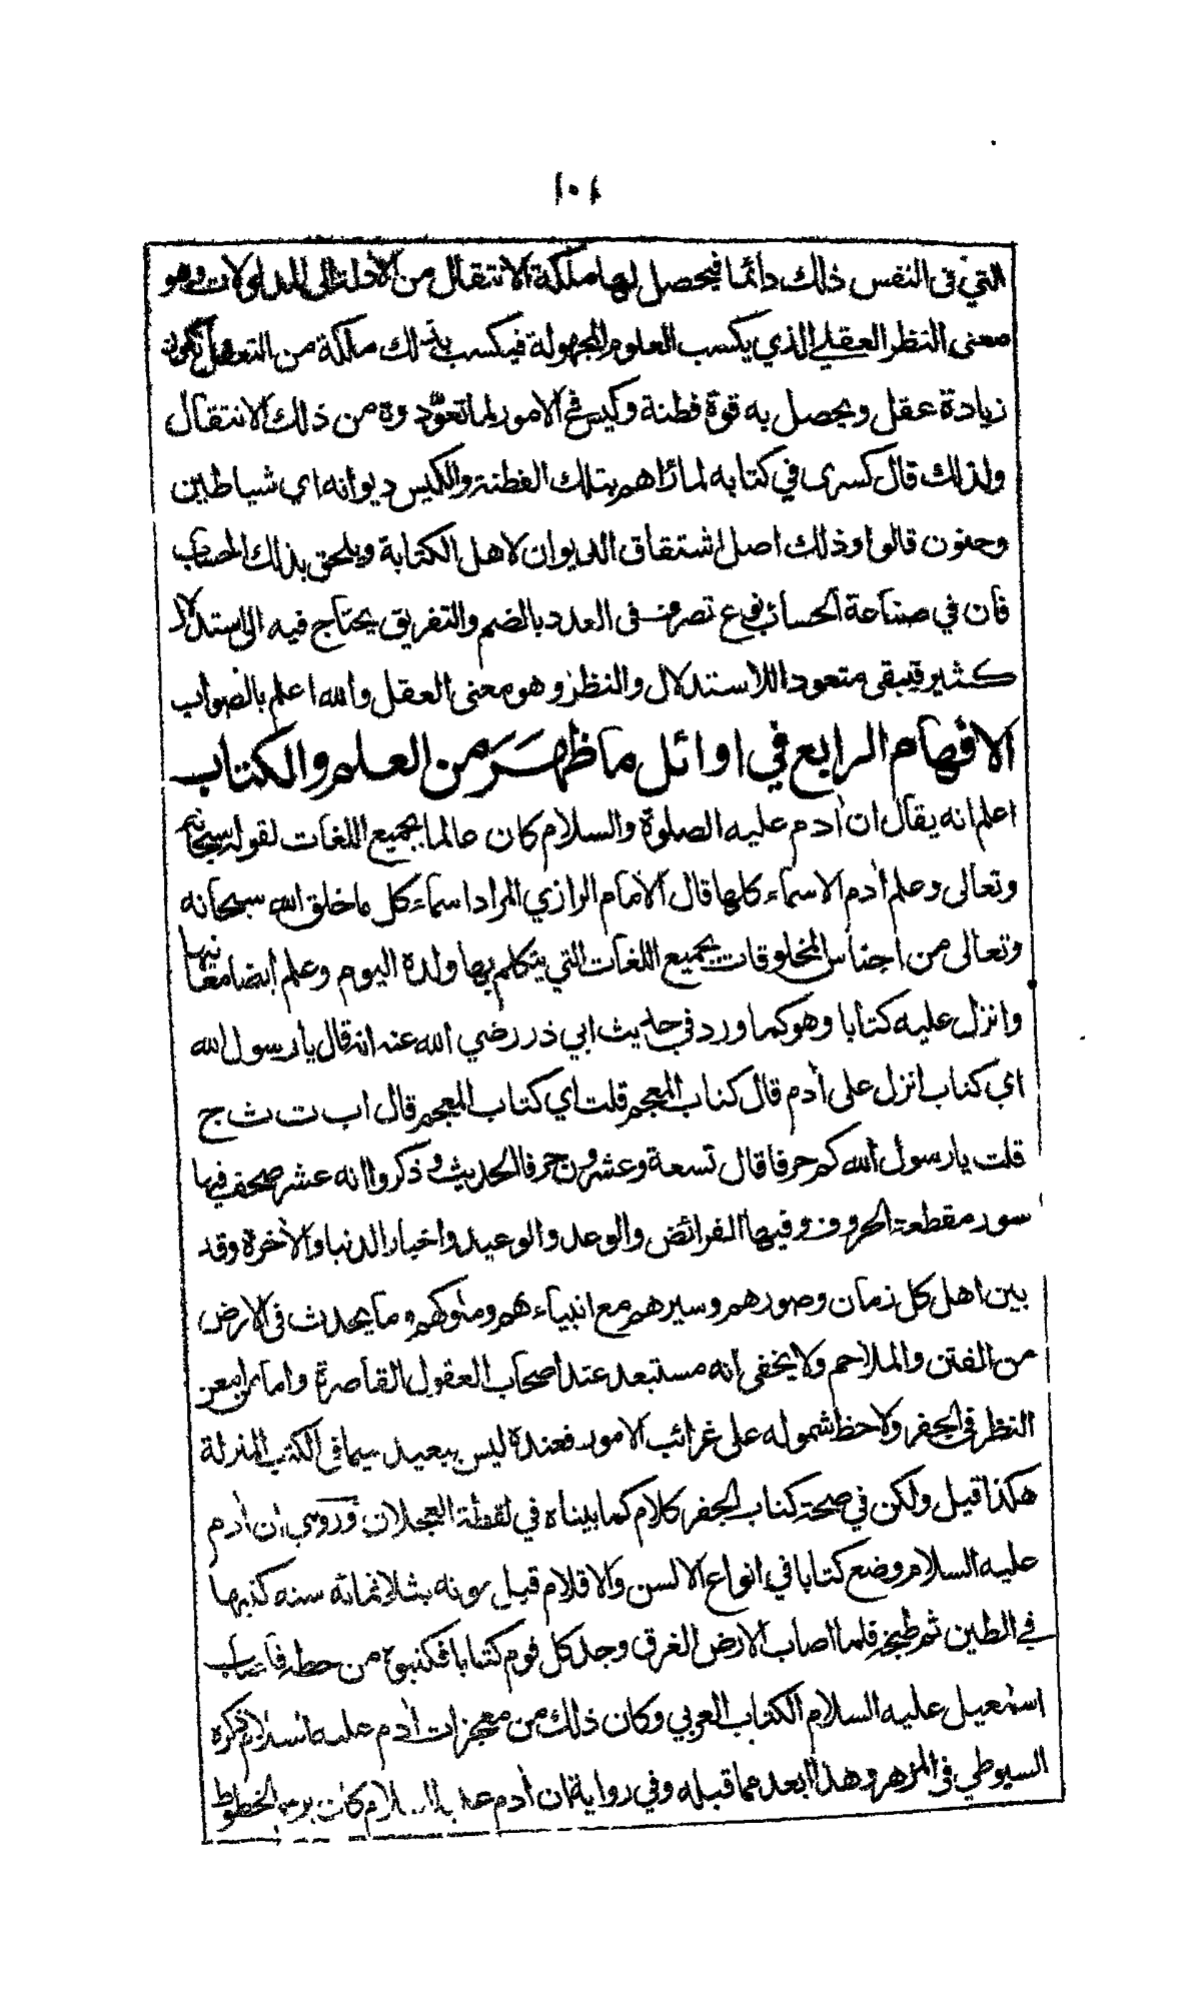 ١٠٤
التي في النفس ذلك دائما فيحصل لها ملكة الانتقال من الادلة الى المدلولات وهو
معنى النظر العقلي الذي يكسب العلوم المجهولة فيكسب بذلك ملكة من التعقل تكون
زيادة عقل ويحصل به قوة فطنة وكيس في الامور لما تعوّدوه من ذلك الانتقال
ولذلك قال كسرى في كتابه لما راهم بتلك الفطنة والكيس ديوانه اى شياطين
وجنون قالوا وذلك اصل اشتقاق الديوان لاهل الكتابة ويلحق بذلك الحساب
فان في صناعة الحساب نوع تصرف في العدد بالضم والتفريق يحتاج فيه الى استدلال
كثير فيبقى متعودا للاستدلال والنظر وهو معنى العقل والله اعلم بالصواب
الافهام الرابع في اوائل ما ظهَرَ من العلم والكتاب
اعلم انه يقال ان أدم عليه الصلوة والسلام كان عالما بجميع اللغات لقوله سبحانه
وتعالى وعلم أدم الاسماء كلها قال الامام الرازي المراد اسماء كل ما خلق الله سبحانه
وتعالى من اجناس المخلوقات بجميع اللغات التي يتكلم بها ولده اليوم وعلم ايضا معانيها
وانزل عليه كتابا وهو كما ورد في حديث ابي ذر رضي الله عنه انه قال يا رسول الله
اي كتاب انزل على أدم قال كتاب المعجم قلت اي كتاب المعجم قال ا ب ت ث ج
قلت يا رسول الله كم حرفا قال تسعة وعشرون حرفا الحديث وذكروا انه عشر صحف فيها
سور مقطعة الحروف وفيها الفرائض والوعد والوعيد واخبار الدنيا والأخرة وقد
بين اهل كل زمان وصورهم وسيرهم مع انبياءهم وملوكهم وما يحدث في الارض
من الفتن والملاحم ولا يخفى انه مستبعد عند اصحاب العقول القاصرة واما من امعن
النظر في الجفر ولاحظ شموله على غرائب الامور فعنده ليس ببعيد سيما في الكتب المنزلة
هكذا قيل ولكن في صحة كتاب الجفر كلام كما بيناه في لقطة العجلان وروى ان أدم
عليه السلام وضع كتابا في انواع الالسن والاقلام قبل موته بثلاثمائة سنه كتبها
في الطين ثم طبخه فلما اصاب الارض الغرق وجد كل قوم كتابا فكتبوه من خطه فاصاب
اسمعيل عليه السلام الكتاب العربي وكان ذلك من معجزات أدم عليه السلام ذكره
السيوطي في المزهر وهذا ابعد مما قبله وفي رواية ان أدم عليه السلام كان يرسم الخطوط